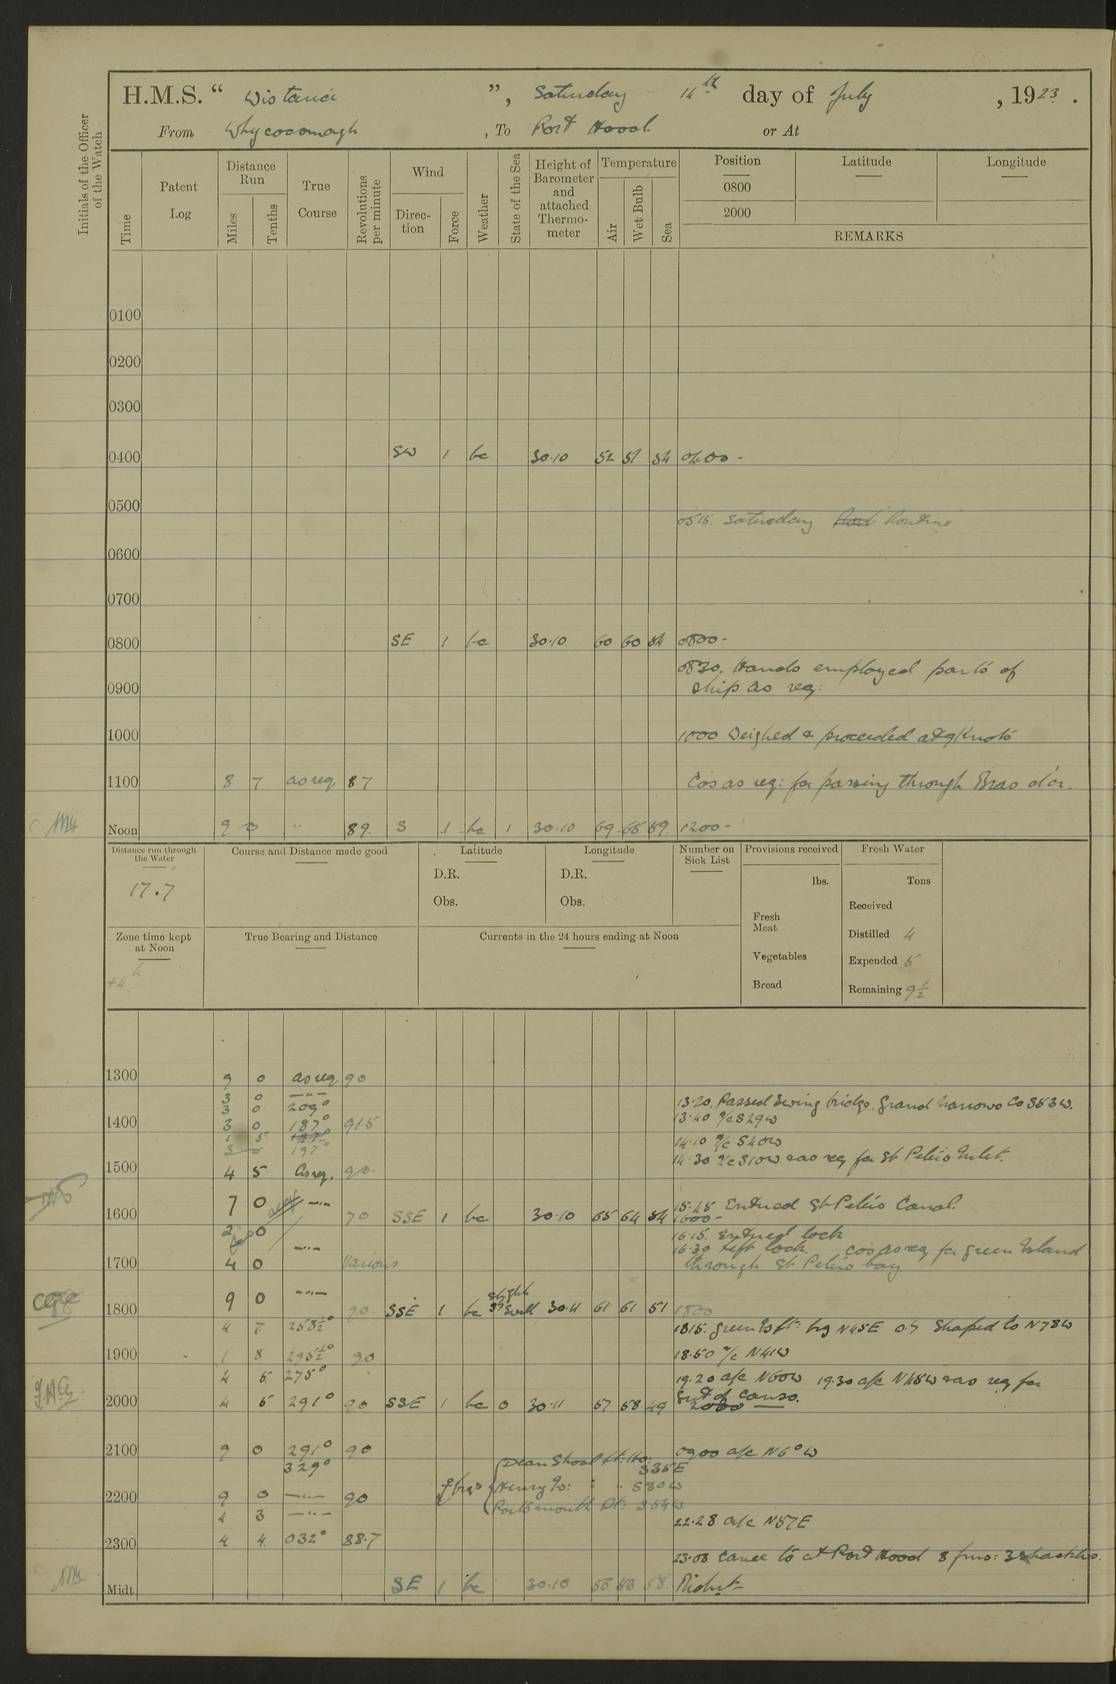 H.M.S. “ Wistaria ”, Saturday 14th day of July, 1923.
From Whycocomagh, To Port Hood. or At
Initials of the Officer of the Watch
Time
Patent Log
Distance Run
Miles Tenths
True Course
Revolutions per minute
Wind
Direction Force
Weather
State of the Sea
Height of Barometer and attached Thermometer
Temperature
Air Wet Bulb Sea
Position Latitude Longitude
0800
2000
REMARKS
0100
0200
0300
0400 SW 1 bc 30.10 52 51 54 0400 -
0500
0515. Saturday Routine
0600
0700
0800 SE 1 bc 30.10 60 60 54 0800 -
0830. Hands employed parts of
0900 ship as req:
1000 1000 Weighed & proceeded at 9 knots
1100 8 7 as req 87 Cos as req: for passing through Bras d'or.
Noon 9 0 " 89. S 1 bc 1 30.10 69 65 59 1200 -
Distance run through the Water
17.7
Course and Distance made good
Latitude
D.R.
Obs.
Longitude
D.R.
Obs.
Number on Sick List
Provisions received
lbs.
Fresh Meat
Vegetables
Bread
Fresh Water
Tons
Received
Distilled 4
Expended 5
Remaining 9½
Zone time kept at Noon
+4
True Bearing and Distance
Currents in the 24 hours ending at Noon
1300 9 0 as req 90
3 0 —"—
3 0 209° 13.20. Passed Swing bridge. Grand Narrows Co S53W.
1400 3 0 187° 91.5 13.40 a/c S29W
1 5 14.10 a/c S40W
3 0 197° 14.30 a/c S10W & as req for St Peters Inlet.
1500 4 5 As req. 90
7 0 —"— 15.45 Entered St Peters Canal.
1600 70 SSE 1 bc 30.10 65 64 54 1600 -
2 0 16.15. Entered lock
—"— 16.30 Left lock. Cos as req for Green Island
1700 4 0 Various through St Peters bay
9 0 —"— slight
1800 90 SSE 1 bc Swell 30.11 61 61 51 1800
4 7 258½° 1815. Green Is lt: brg N45E 0.7 Shaped to N78W
1900 1 8 295½° 90 18.50 a/c N41W
4 5 275° 19.20 a/c N60W 19.30 a/c N45W & as req for
2000 4 5 291° 90 SSE 1 bc 0 30.11 57 58 49 Gut of Canso.
2000 —
2100 9 0 291° 90 0900 a/c N6°W
329° Dean Shoal lt: Ho: S35E
2200 9 0 —"— 90 Henry Is: " " S80W
4 3 —"— Portsmouth Pt: S54W
22.28 a/c N57E
2300 4 4 032° 88.7
23.08 Came to at Port Hood 8 fms: 3 shackles.
Midt. SE 1 bc 30.10 58 Midnt